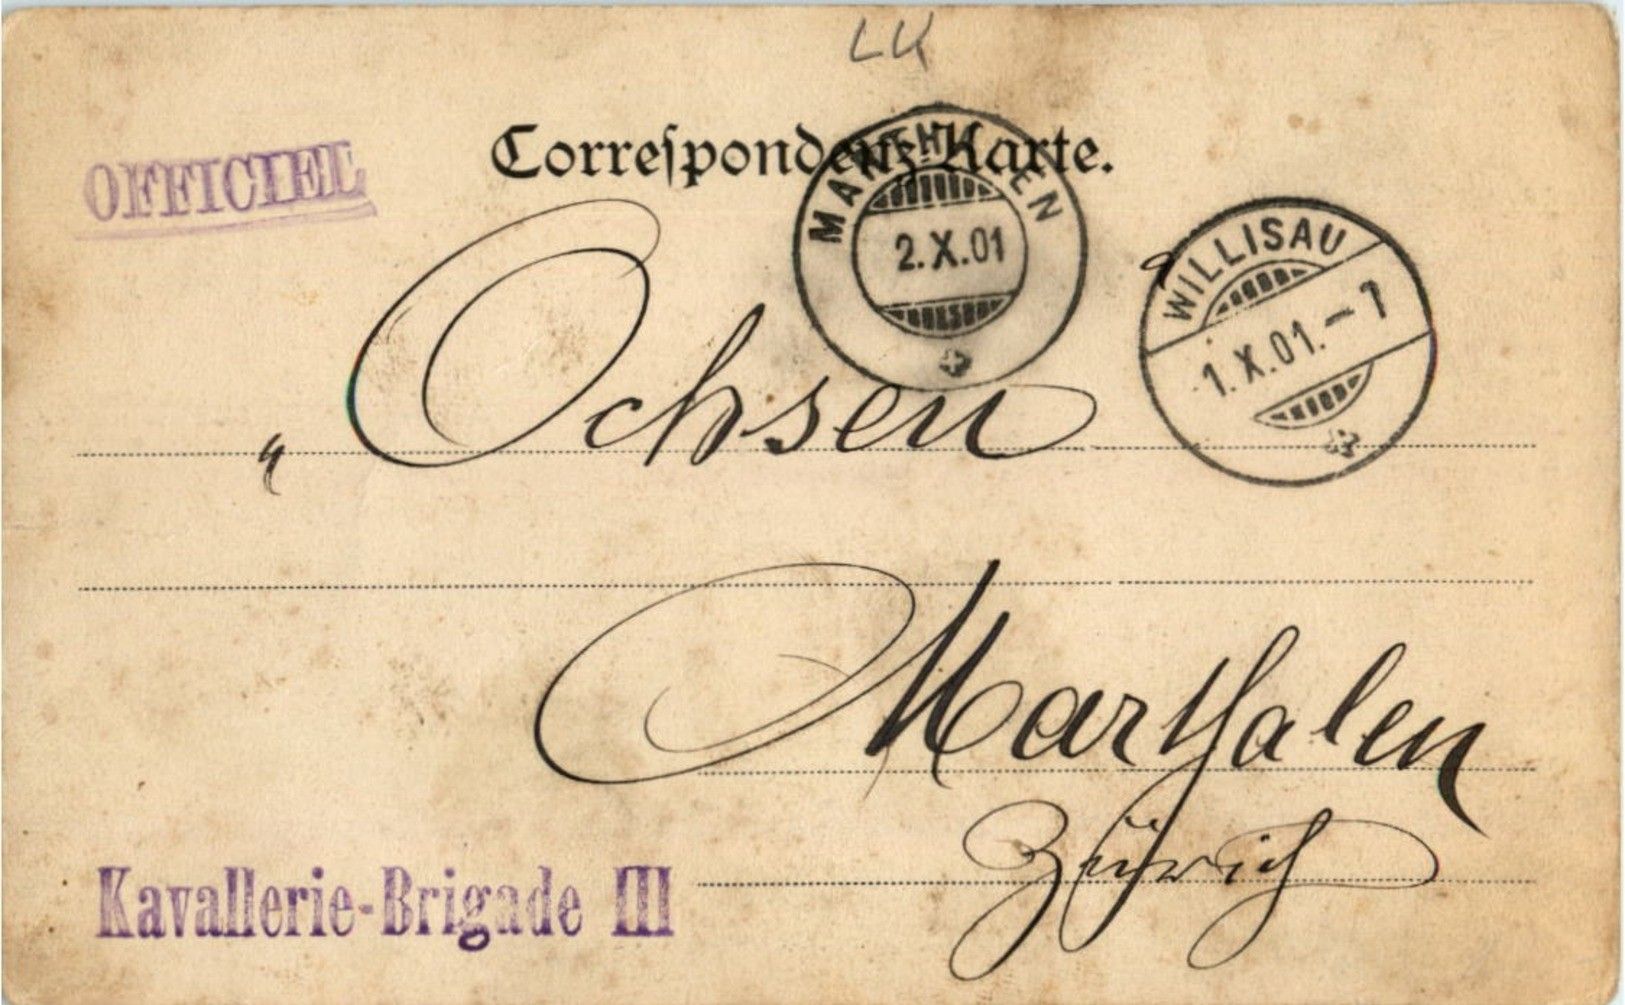 LU
Correſpondenz-Karte.
OFFICIEL
MARTHALEN
2.X.01
WILLISAU
1.X.01.-7
„Ochsen
Marthalen
Zürich
Kavallerie-Brigade III